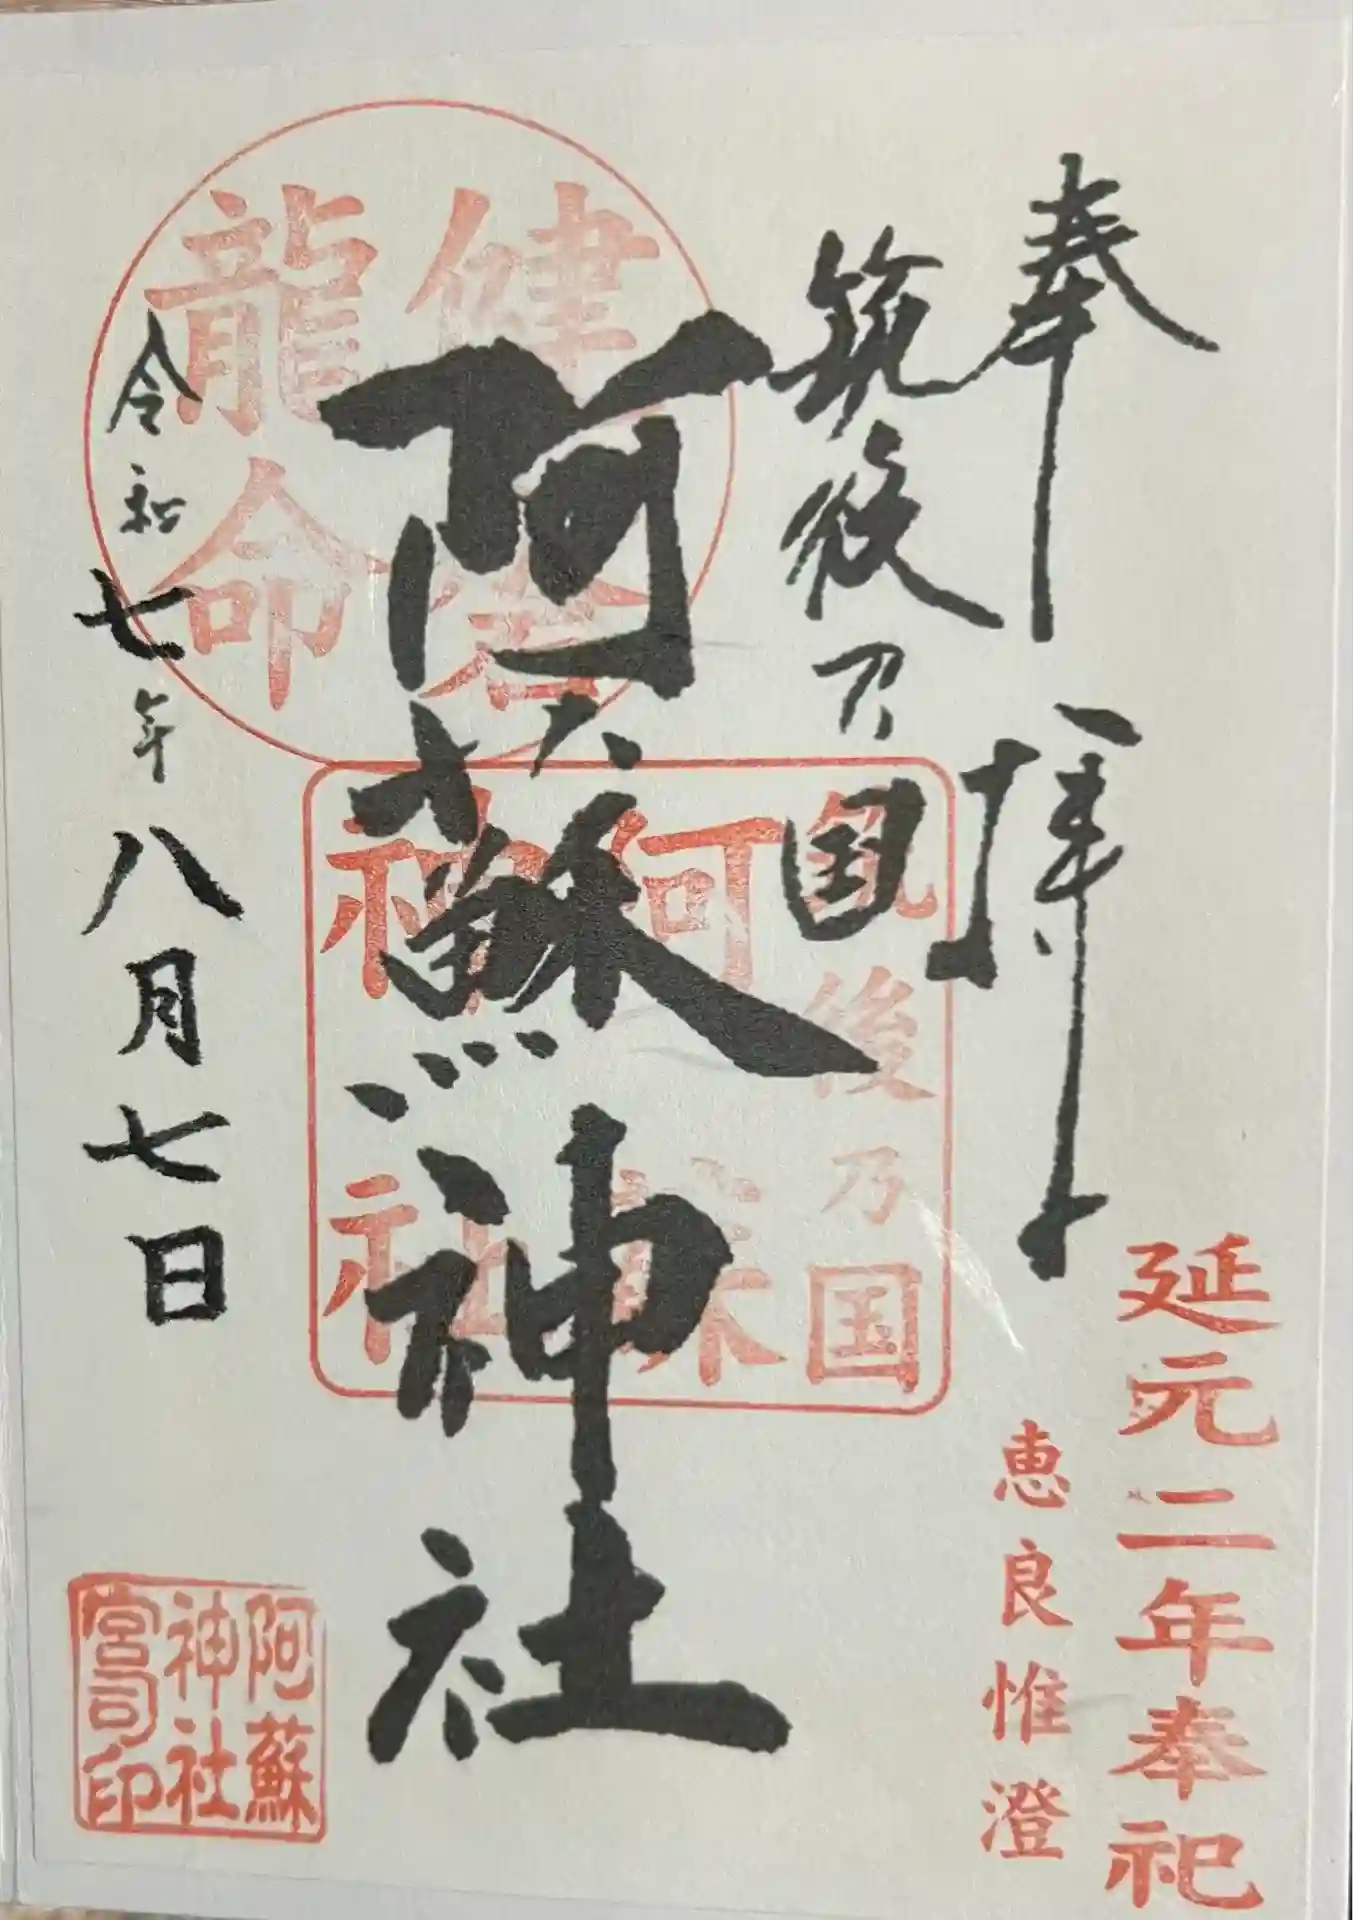 奉拝
延元二年奉祀
恵良惟澄
筑後乃国
阿蘇神社
健磐
龍命
筑後乃国
阿蘇
神社
令和七年八月七日
阿蘇
神社
宮司印